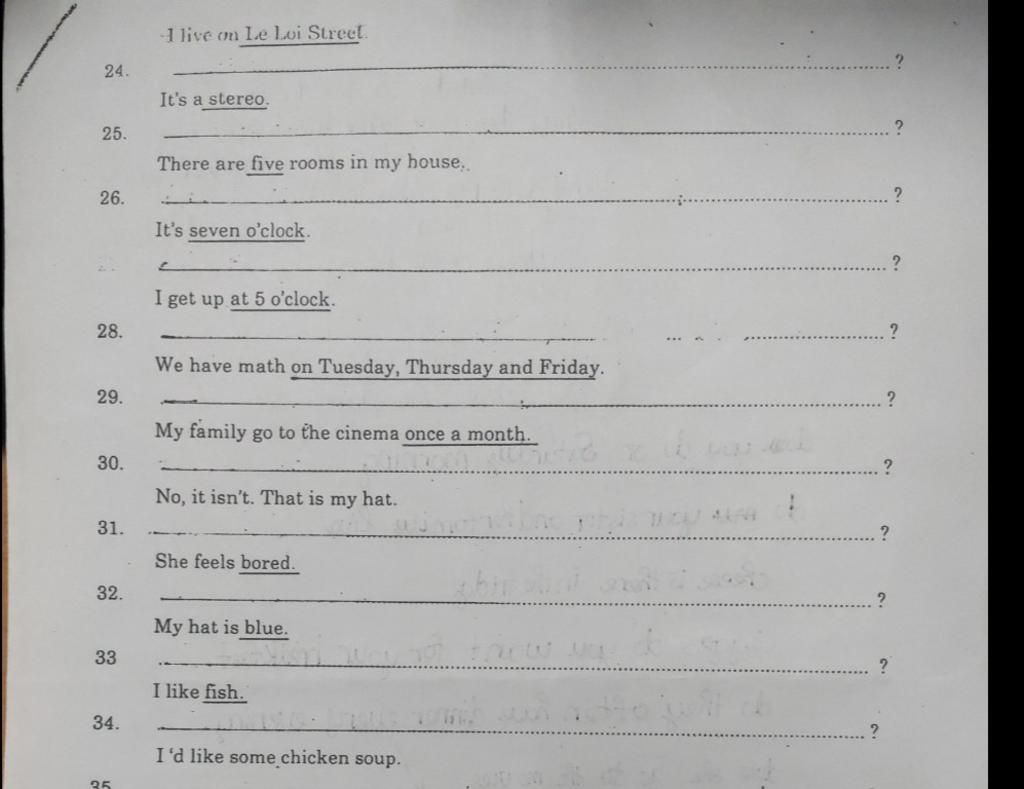 I live on Le Loi Street.
24. ?
It's a stereo.
25. ?
There are five rooms in my house.
26. ?
It's seven o'clock.
?
I get up at 5 o'clock.
28. ?
We have math on Tuesday, Thursday and Friday.
29. ?
My family go to the cinema once a month.
30. ?
No, it isn't. That is my hat.
31. ?
She feels bored.
32. ?
My hat is blue.
33 ?
I like fish.
34. ?
I 'd like some chicken soup.
35